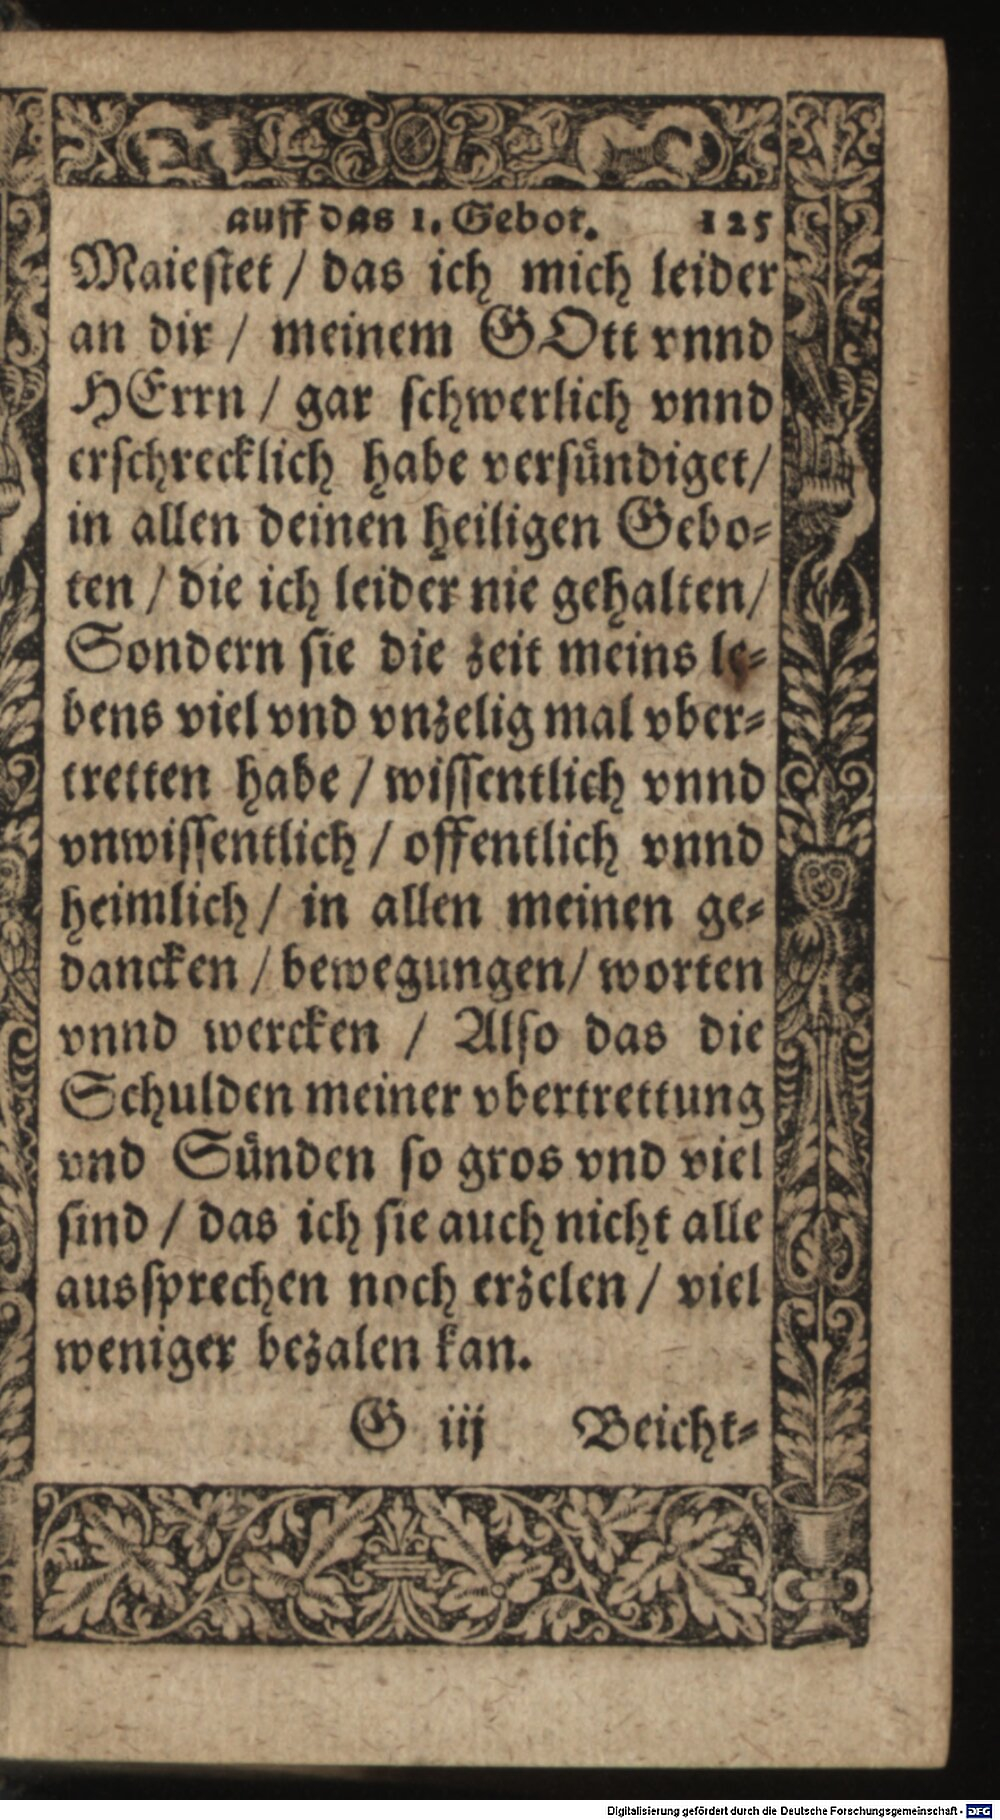 auff das 1. Gebot. 125
Maiestet / das ich mich leider
an dir / meinem GOtt vnnd
HErrn / gar schwerlich vnnd
erschrecklich habe versündiget/
in allen deinen heiligen Gebo-
ten / die ich leider nie gehalten/
Sondern sie die zeit meins le-
bens viel vnd vnzelig mal vber-
tretten habe / wissentlich vnnd
vnwissentlich / offentlich vnnd
heimlich / in allen meinen ge-
dancken / bewegungen/ worten
vnnd wercken / Also das die
Schulden meiner vbertrettung
vnd Sünden so gros vnd viel
sind / das ich sie auch nicht alle
aussprechen noch erzelen / viel
weniger bezalen kan.
G iij Beicht-
Digitalisierung gefördert durch die Deutsche Forschungsgemeinschaft - DFG